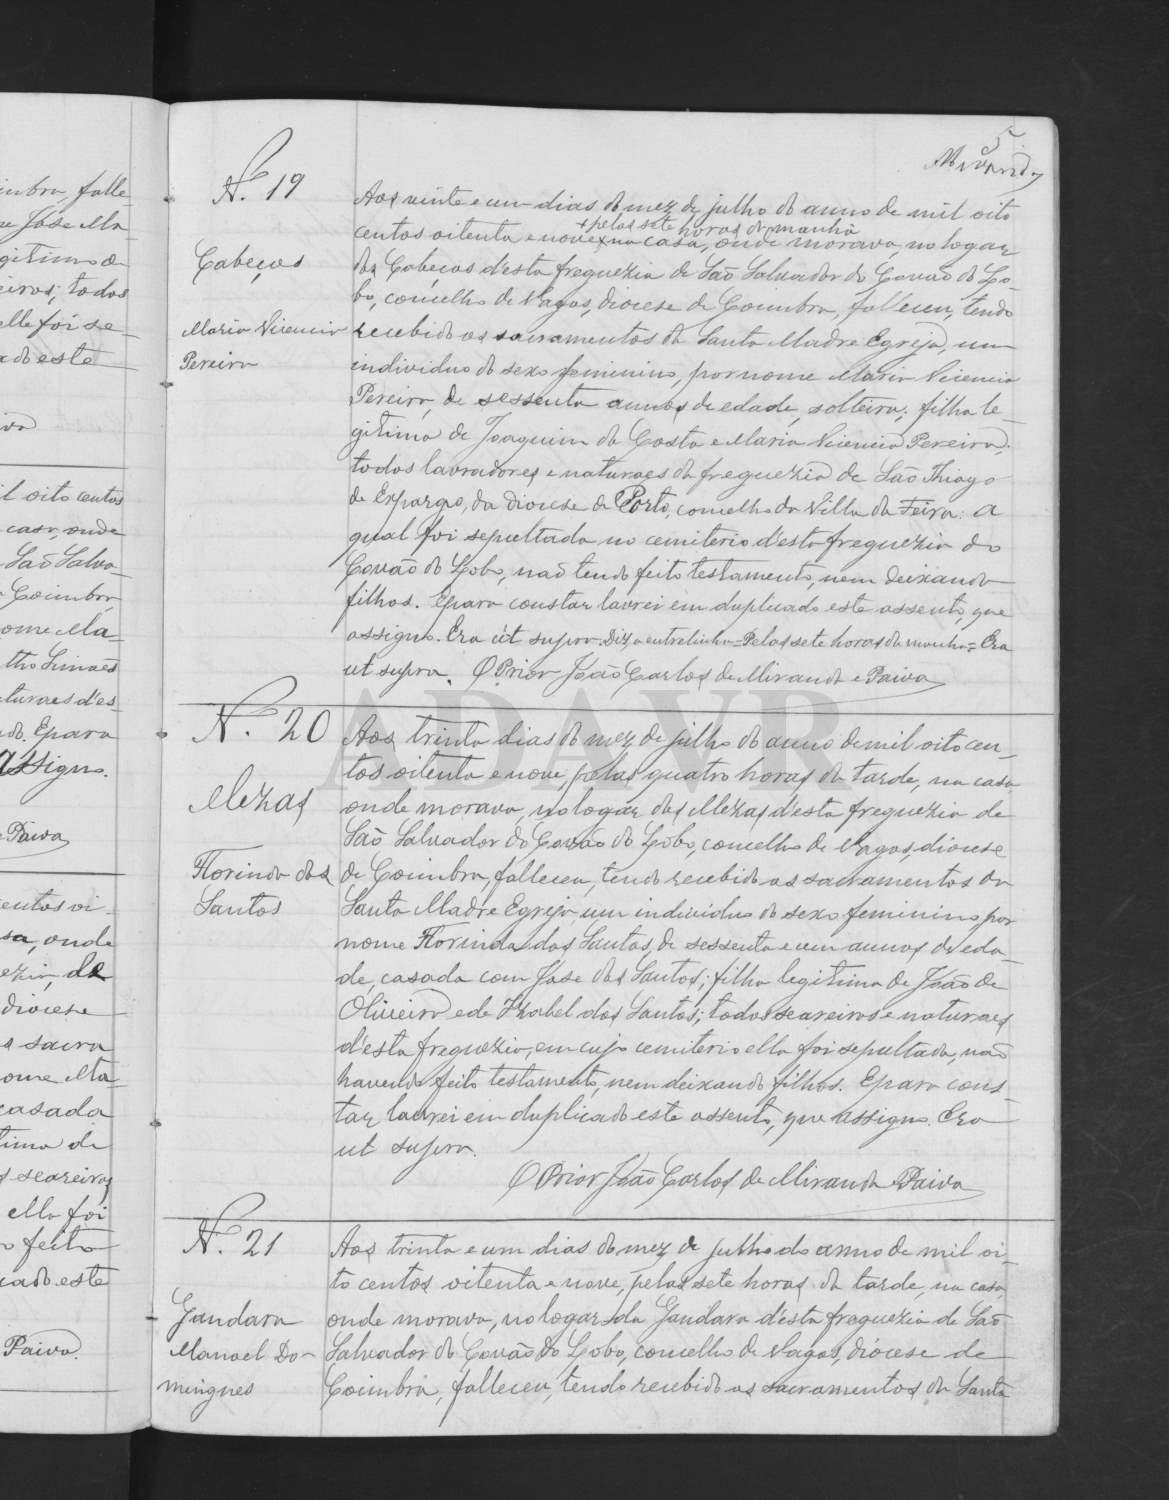 5
Miranda
N.º 19
Cabeços
Maria Vicencia
Pereira
Aos vinte e um dias do mez de julho do anno de mil oito
centos oitenta e nove, + pelas sete horas da manhã na casa, onde morava, no logar
dos Cabeços d'esta freguezia de São Salvador do Covão do Lo-
bo, concelho de Vagos, diocese de Coimbra, falleceu, tendo
recebido os sacramentos da Santa Madre Egreja, um
individuo do sexo feminino, por nome Maria Vicencia
Pereira, de sessenta annos de edade, solteira, filha le-
gitima de Joaquim da Costa e Maria Vicencia Pereira,
todos lavradores e naturaes da freguezia de São Thiago
de Espargo, da diocese do Porto, concelho da Villa da Feira. a
qual foi sepultada no cemiterio d'esta freguezia do
Covão do Lobo, não tendo feito testamento, nem deixando
filhos. E para constar lavrei em duplicado este assento, que
assigno. Era ut supra. Diz a entrelinha = Pelas sete horas da manhã = Era
ut supra. O Prior João Carlos de Miranda e Paiva
N.º 20
Mezas
Florinda dos
Santos
Aos trinta dias do mez de julho do anno de mil oito cen-
tos oitenta e nove, pelas quatro horas da tarde, na casa
onde morava, no logar das Mezas d'esta freguezia de
São Salvador do Covão do Lobo, concelho de Vagos, diocese
de Coimbra, falleceu, tendo recebido os sacramentos da
Santa Madre Egreja, um individuo do sexo feminino por
nome Florinda dos Santos, de sessenta e um annos de eda-
de, casada com Jose dos Santos; filha legitima de João de
Oliveira e de Izabel dos Santos; todos seareiros e naturaes
d'esta freguezia, em cujo cemiterio ella foi sepultada, não
havendo feito testamento, nem deixando filhos. E para cons-
tar lavrei em duplicado este assento, que assigno. Era
ut supra.
O Prior João Carlos de Miranda e Paiva
N.º 21
Gandara
Manoel Do-
mingues
Aos trinta e um dias do mez de julho do anno de mil oi-
to centos oitenta e nove, pelas sete horas da tarde, na casa
onde morava, no logar da Gandara d'esta freguezia de São
Salvador do Covão do Lobo, concelho de Vagos, diocese de
Coimbra, falleceu, tendo recebido os sacramentos da Santa
ADAVR